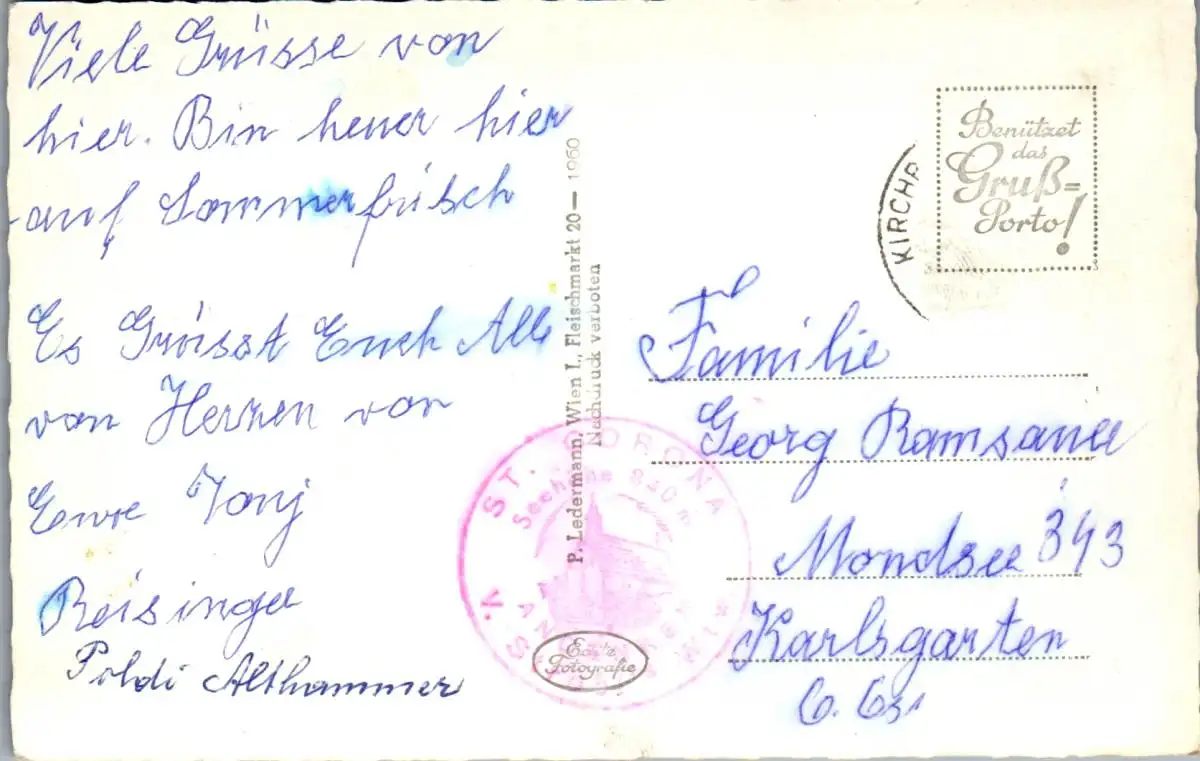 Viele Grüsse von
hier. Bin heuer hier
auf Sommerfrisch
Es Grüsst Euch Alle
von Herzen von
Eure
Reisinger
Poldi Althammer
P. Ledermann, Wien I., Fleischmarkt 20 — 1960
Nachdruck verboten
KIRCHB
Benützet
das
Gruß=
Porto!
Familie
Georg Ramsauer
Mondsee 343
Karlsgarten
O. Ös.
ST. CORONA
Seehöhe 840 m
Echte
Fotografie